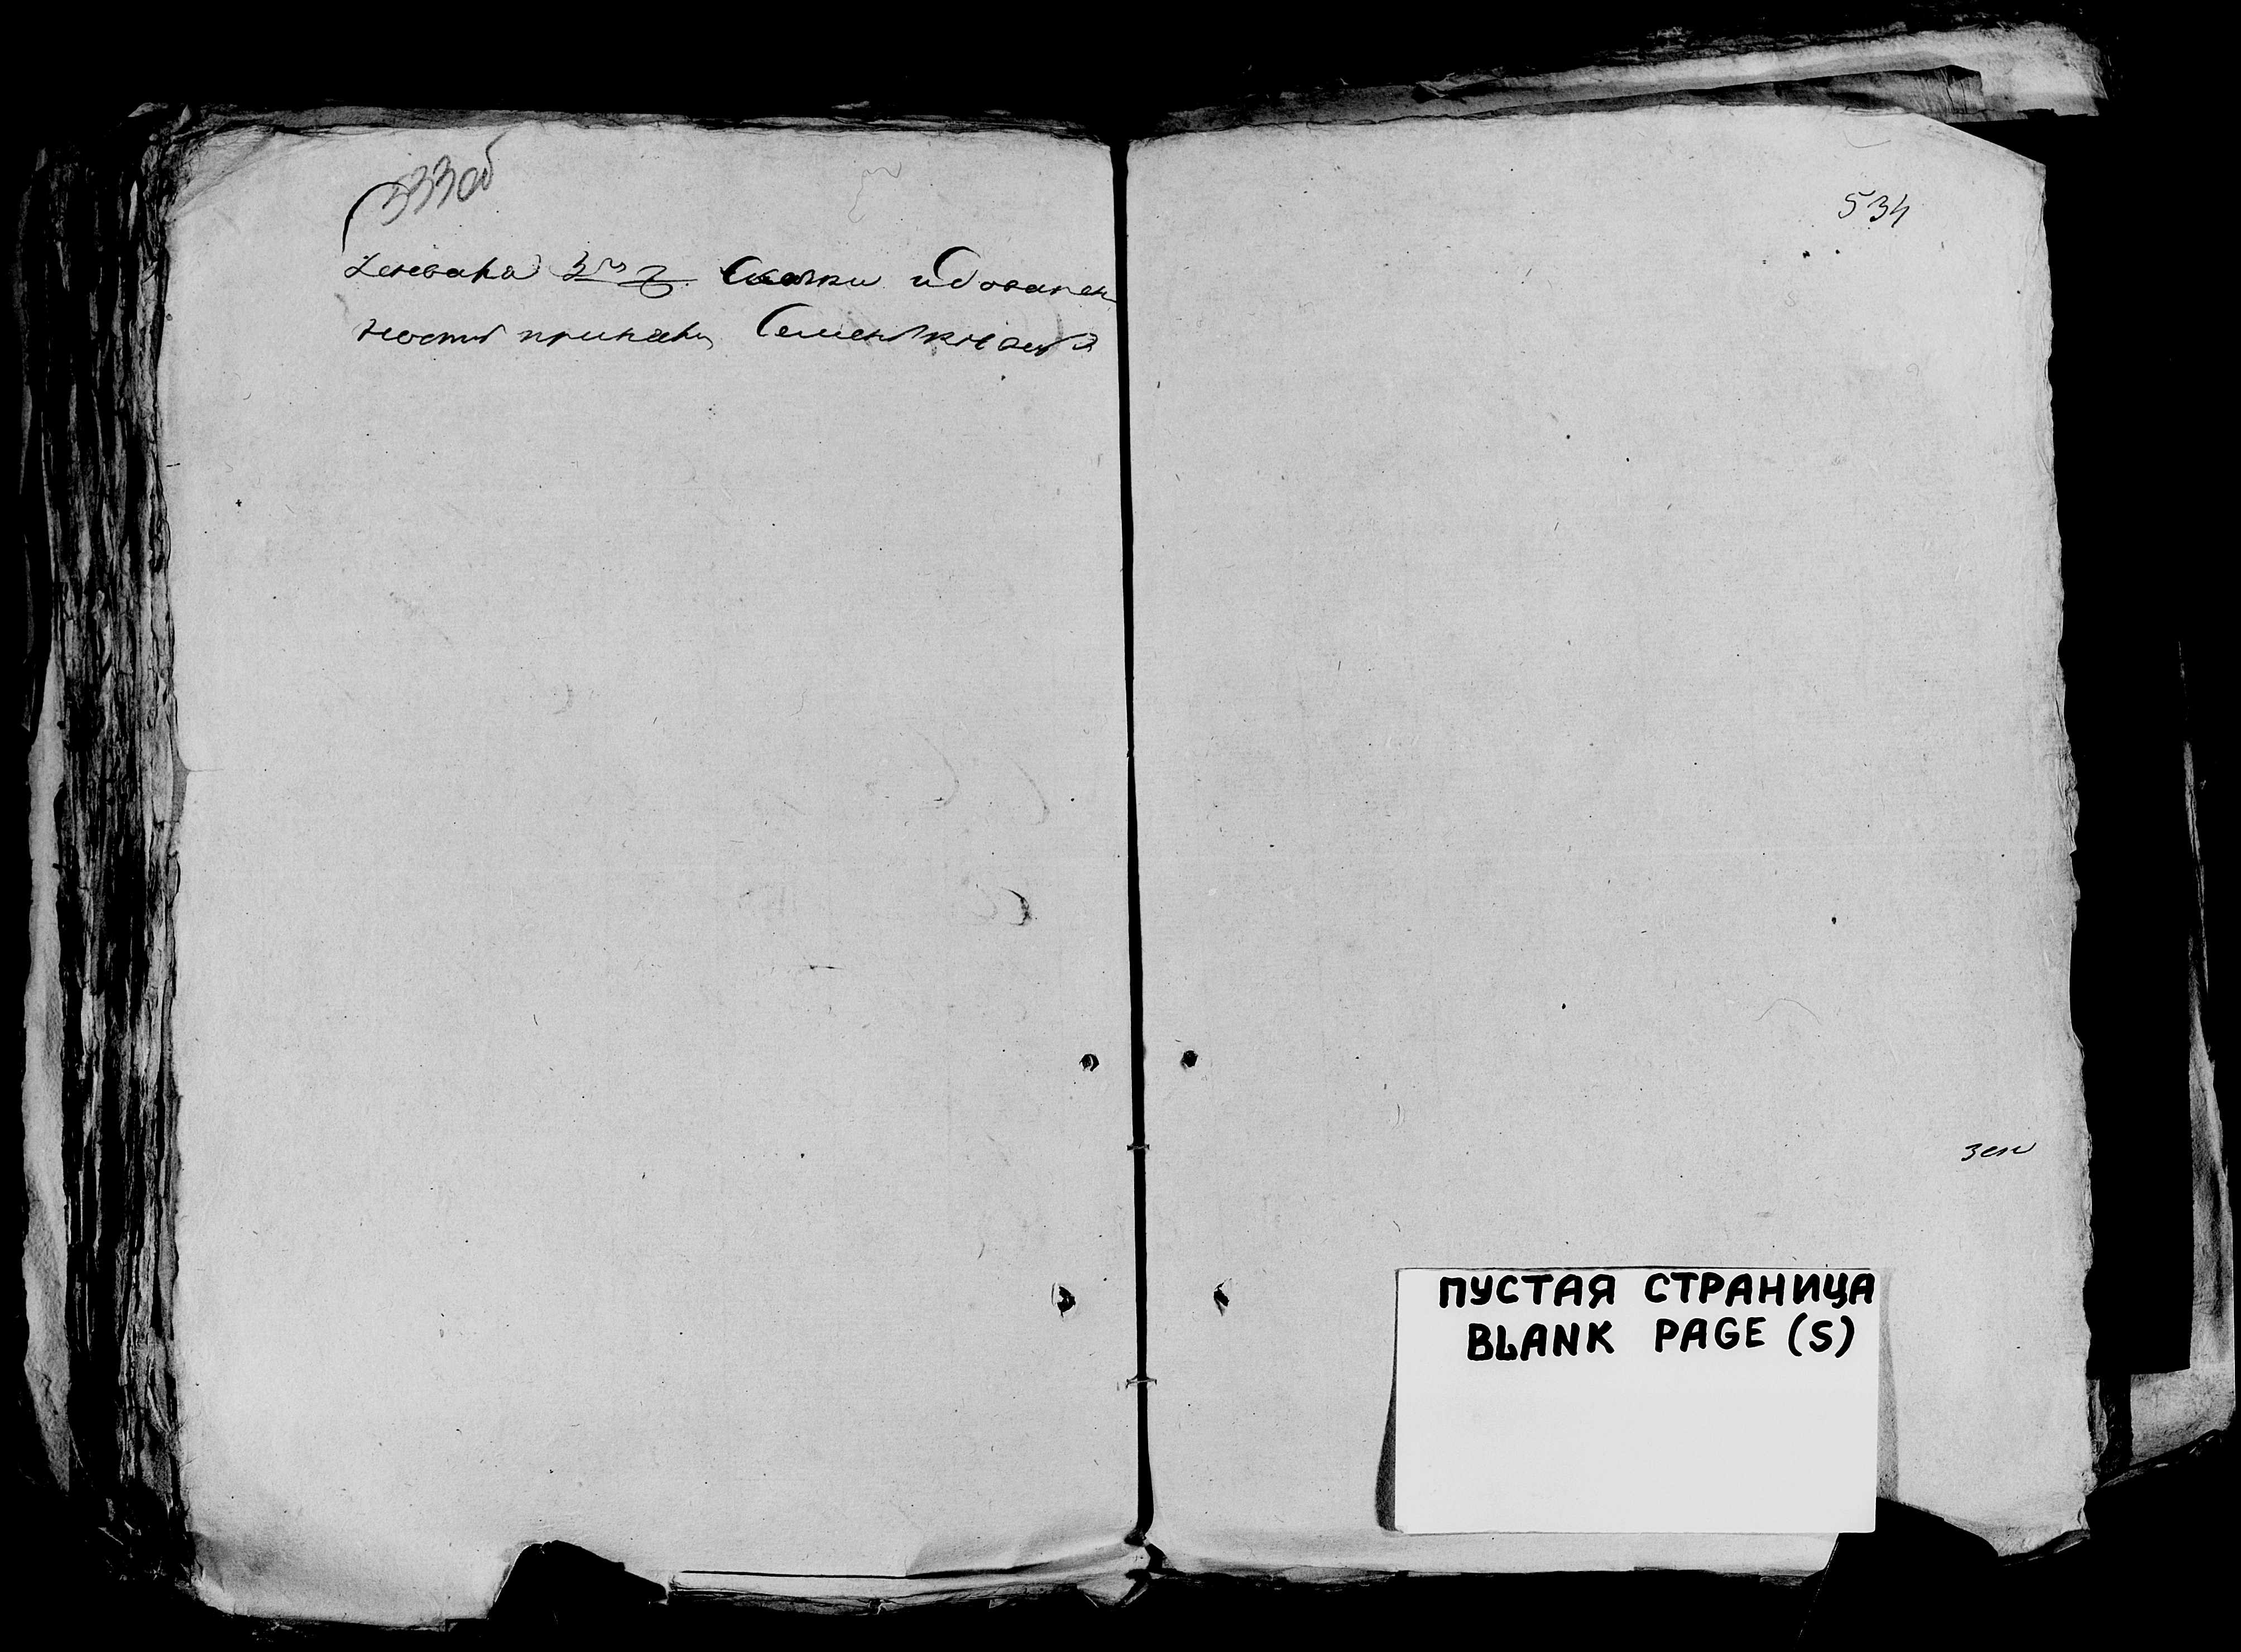 533об
Генваря 3го ч. Сказки и доверен
ность принялъ
534
зем
ПУСТАЯ СТРАНИЦА
BLANK PAGE (S)